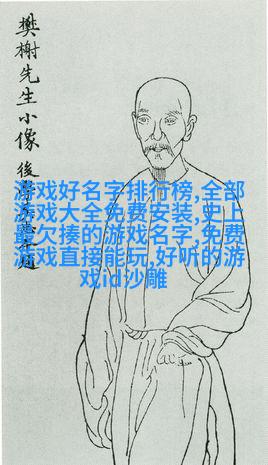 樊榭先生小像
後學
游戏好名字排行榜,全部
游戏大全免费安装,史上
最欠揍的游戏名字,免费
游戏直接能玩,好听的游
戏id沙雕